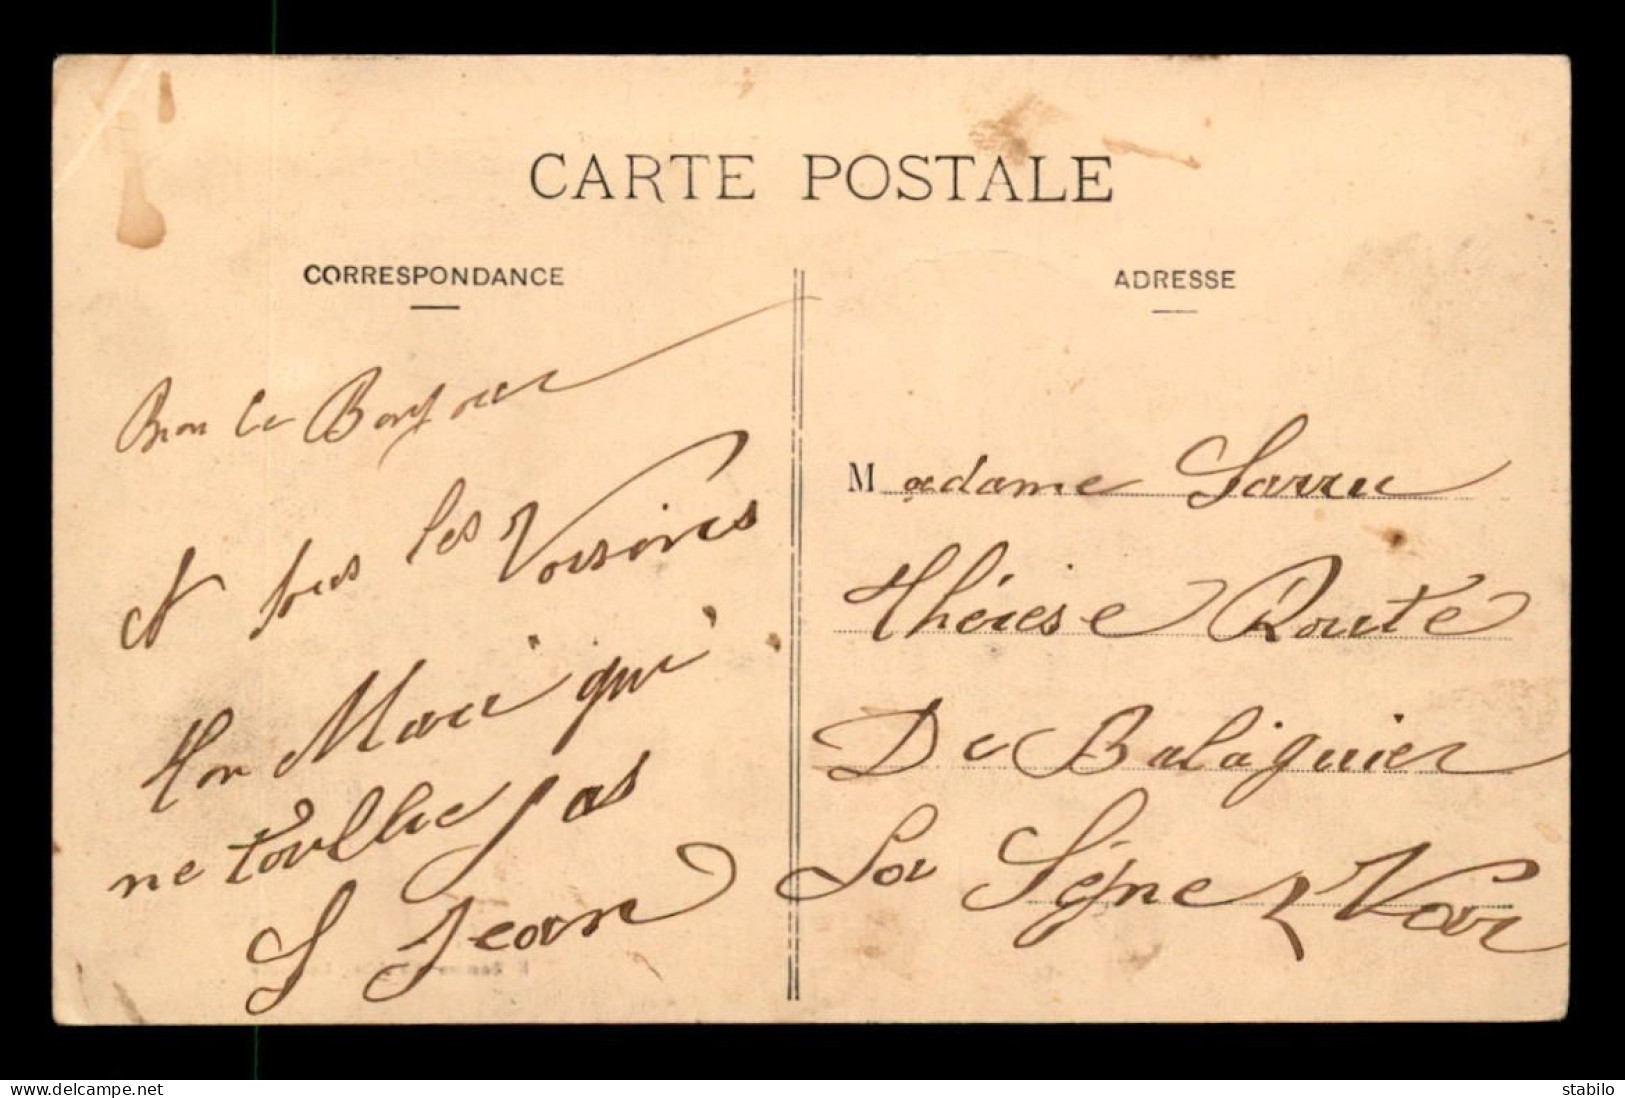 CARTE POSTALE
CORRESPONDANCE
Bien le Bonjour
A tous les Voisins
ton Mari qui
ne toublie pas
S Jean
ADRESSE
Madame Sarru
thérése Route
De Balaguier
La Séyne Var
www.delcampe.net
stabilo